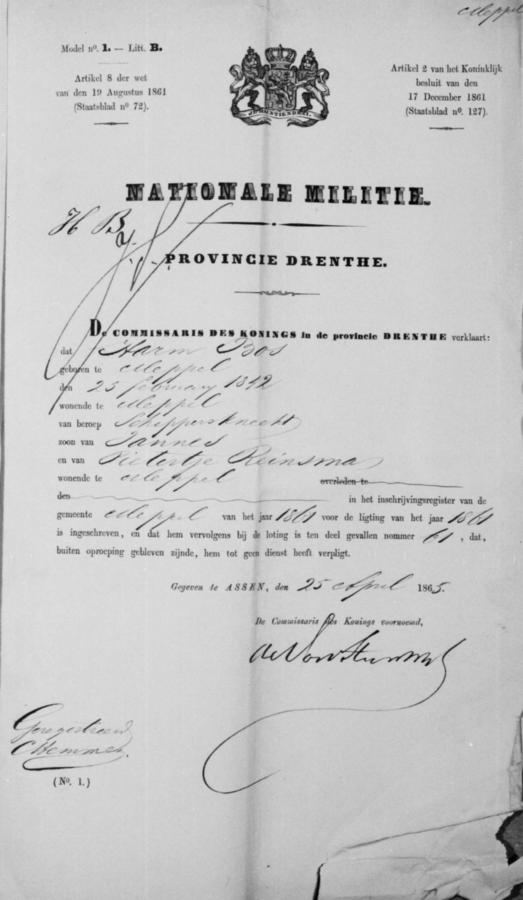 Meppel
Model nº. 1. — Litt. B.
Artikel 8 der wet
van den 19 Augustus 1861
(Staatsblad nº 72).
Artikel 2 van het Koninklijk
besluit van den
17 December 1861
(Staatsblad nº. 127).
JE MAINTIENDRAI
NATIONALE MILITIE.
H B
PROVINCIE DRENTHE.
De COMMISSARIS DES KONINGS in de provincie DRENTHE verklaart:
dat Harm Bos
geboren te Meppel
den 25 february 1842
wonende te Meppel
van beroep Schippersknecht
zoon van Jannes
en van Pietertje Reinsma
wonende te Meppel overleden te
den in het inschrijvingsregister van de
gemeente Meppel van het jaar 1861 voor de ligting van het jaar 1861
is ingeschreven, en dat hem vervolgens bij de loting is ten deel gevallen nommer 61, dat,
buiten oproeping gebleven zijnde, hem tot geen dienst heeft verpligt.
Gegeven te ASSEN, den 25 April 1865.
De Commissaris des Konings voornoemd,
Geregistreerd
(Nº. 1.)